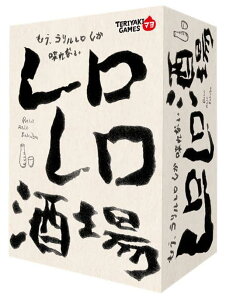 TERIYAKI
GAMES
もう、ラリルレロ しか
喋れない
レロ
レロ
酒場
Rero
Rero
Sakaba
レロレロ
酒場
もう、ラリルレロ しか 喋れない